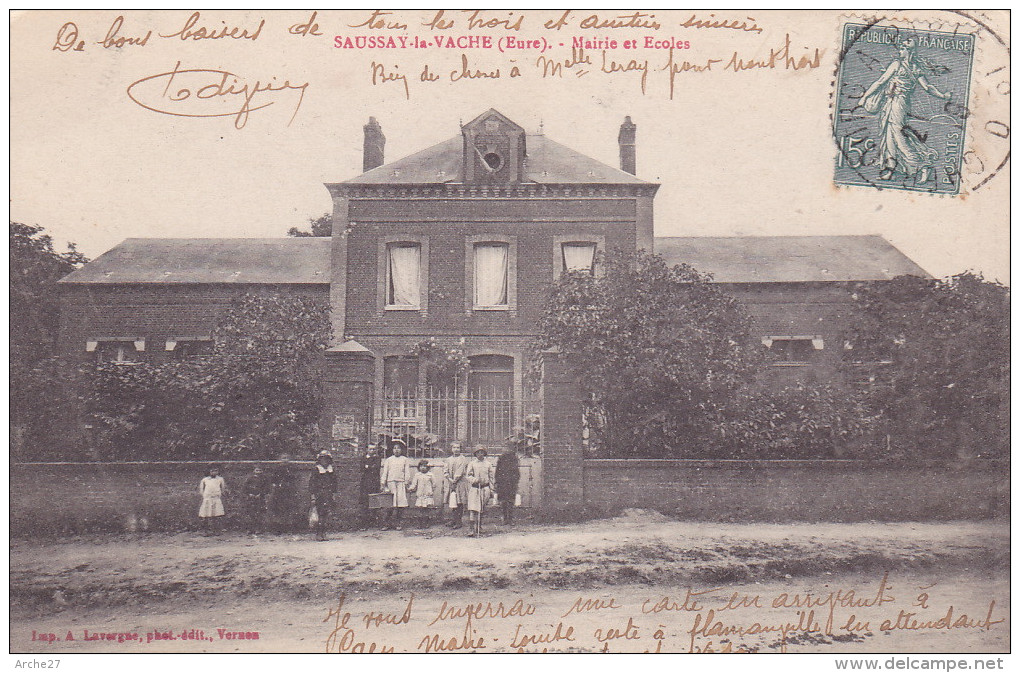 De bons baisers de tous les trois et amitiés sincères
SAUSSAY-la-VACHE (Eure). - Mairie et Ecoles
Bien de choses à Melle Leray pour
REPUBLIQUE FRANÇAISE
15c
POSTES
Je vous enverrai une carte en arrivant à
Marie-Louise reste à Flamanville en attendant
Imp. A. Lavergne, phot.-édit., Vernon
Arche27
http://www.delcampe.net